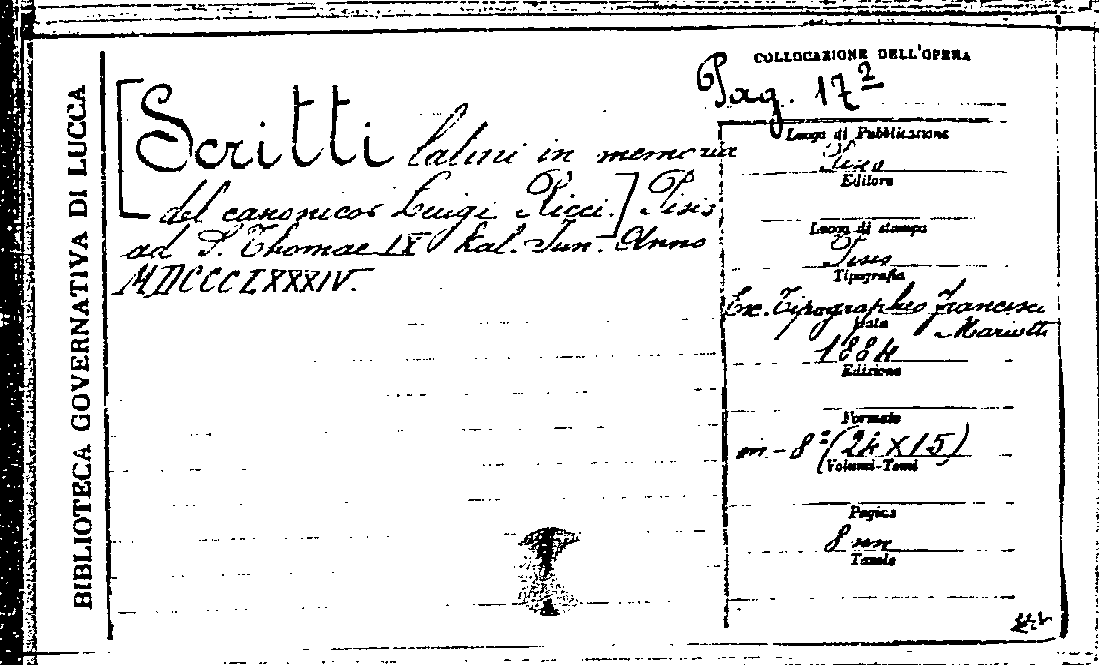 BIBLIOTECA GOVERNATIVA DI LUCCA
[Scritti latini in memoria
del canonico Luigi Ricci.] Pisis
ad S. Thomae IX Kal. Jun. Anno
MDCCCLXXXIV.
COLLOCAZIONE DELL'OPERA
Pag. 17²
Luogo di Pubblicazione
Pisis
Editore
Luogo di stampa
Pisis
Tipografia
Ex. Tipographeo Francisci
Mariotti
Data
1884
Edizione
Formato
in-8° (24 X 15)
Volumi-Tomi
Pagine
8 nn
Tavole